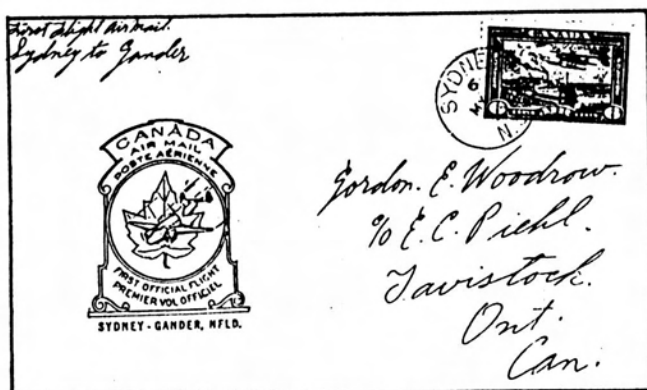 First flight air mail.
Sydney to Gander
CANADA
SYDNEY
6
MY
N.
CANADA
AIR MAIL
POSTE AÉRIENNE
FIRST OFFICIAL FLIGHT
PREMIER VOL OFFICIEL
SYDNEY - GANDER, NFLD.
Gordon. E. Woodrow.
c/o E. C. Piehl.
Tavistock.
Ont.
Can.